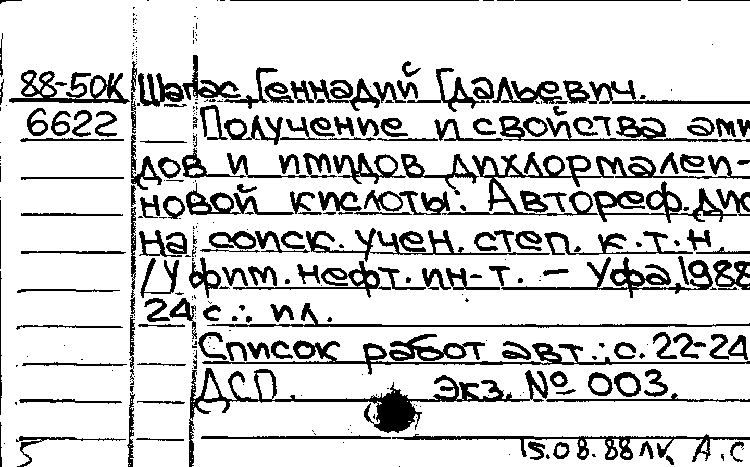 88-50К Шапас, Геннадий Гдальевич.
6622 Получение и свойства ами
дов и имидов дихлормалеи-
новой кислоты: Автореф. дис
на соиск. учен. степ. к.т.н.
/Уфим. нефт. ин-т. – Уфа, 1988
24 с.: ил.
Список работ авт.: с. 22-24
ДСП. Экз. № 003.
5 15.08.88 лк А.С